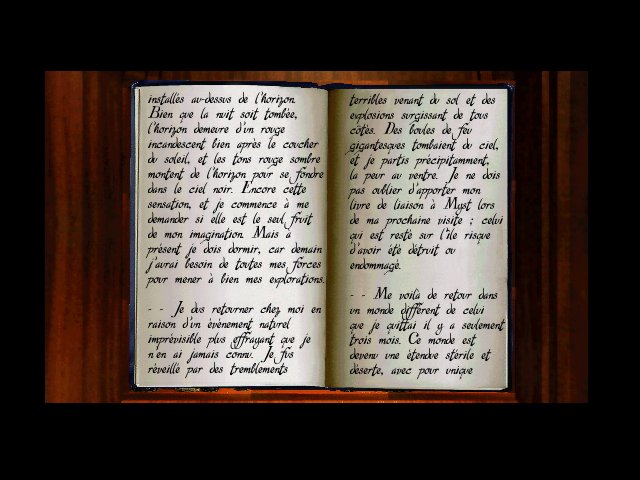 installés au-dessus de l'horizon.
Bien que la nuit soit tombée,
l'horizon demeure d'un rouge
incandescent bien après le coucher
du soleil, et les tons rouge sombre
montent de l'horizon pour se fondre
dans le ciel noir. Encore cette
sensation, et je commence à me
demander si elle est le seul fruit
de mon imagination. Mais à
présent je dois dormir, car demain
j'aurai besoin de toutes mes forces
pour mener à bien mes explorations.
- - Je dus retourner chez moi en
raison d'un événement naturel
imprévisible plus effrayant que je
n'en ai jamais connu. Je fus
réveillé par des tremblements
terribles venant du sol et des
explosions surgissant de tous
côtés. Des boules de feu
gigantesques tombaient du ciel,
et je partis précipitamment,
la peur au ventre. Je ne dois
pas oublier d'apporter mon
livre de liaison à Myst lors
de ma prochaine visite ; celui
qui est resté sur l'île risque
d'avoir été détruit ou
endommagé.
- - Me voilà de retour dans
un monde différent de celui
que je quittai il y a seulement
trois mois. Ce monde est
devenu une étendue stérile et
déserte, avec pour unique